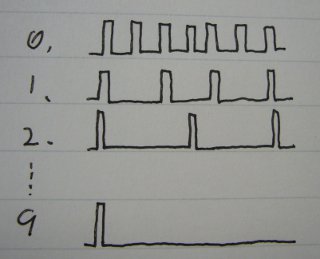 0.
1.
2.
9